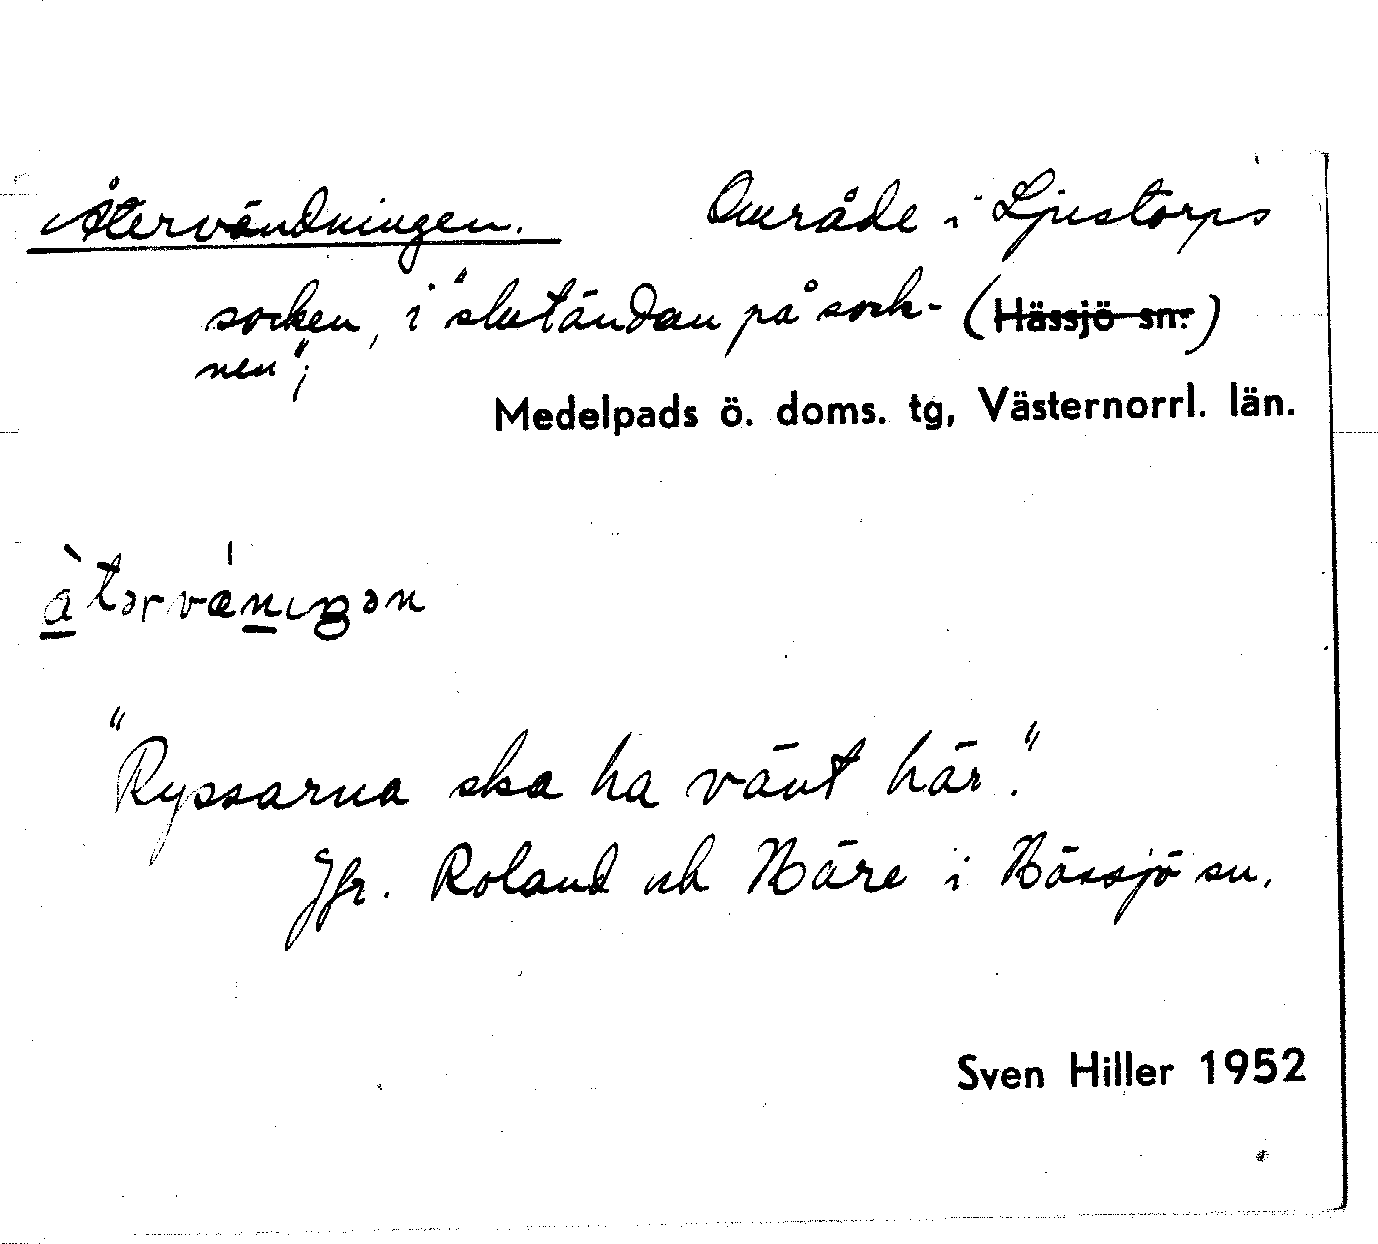 Återvändningen. Område i Ljustorps
socken, i "slutändan på sock- (Hässjö sn.)
nen";
Medelpads ö. doms. tg, Västernorrl. län.
àtərvǽnıŋən
"Ryssarna ska ha vänt här."
Jfr. Roland och Häre i Hässjö sn.
Sven Hiller 1952